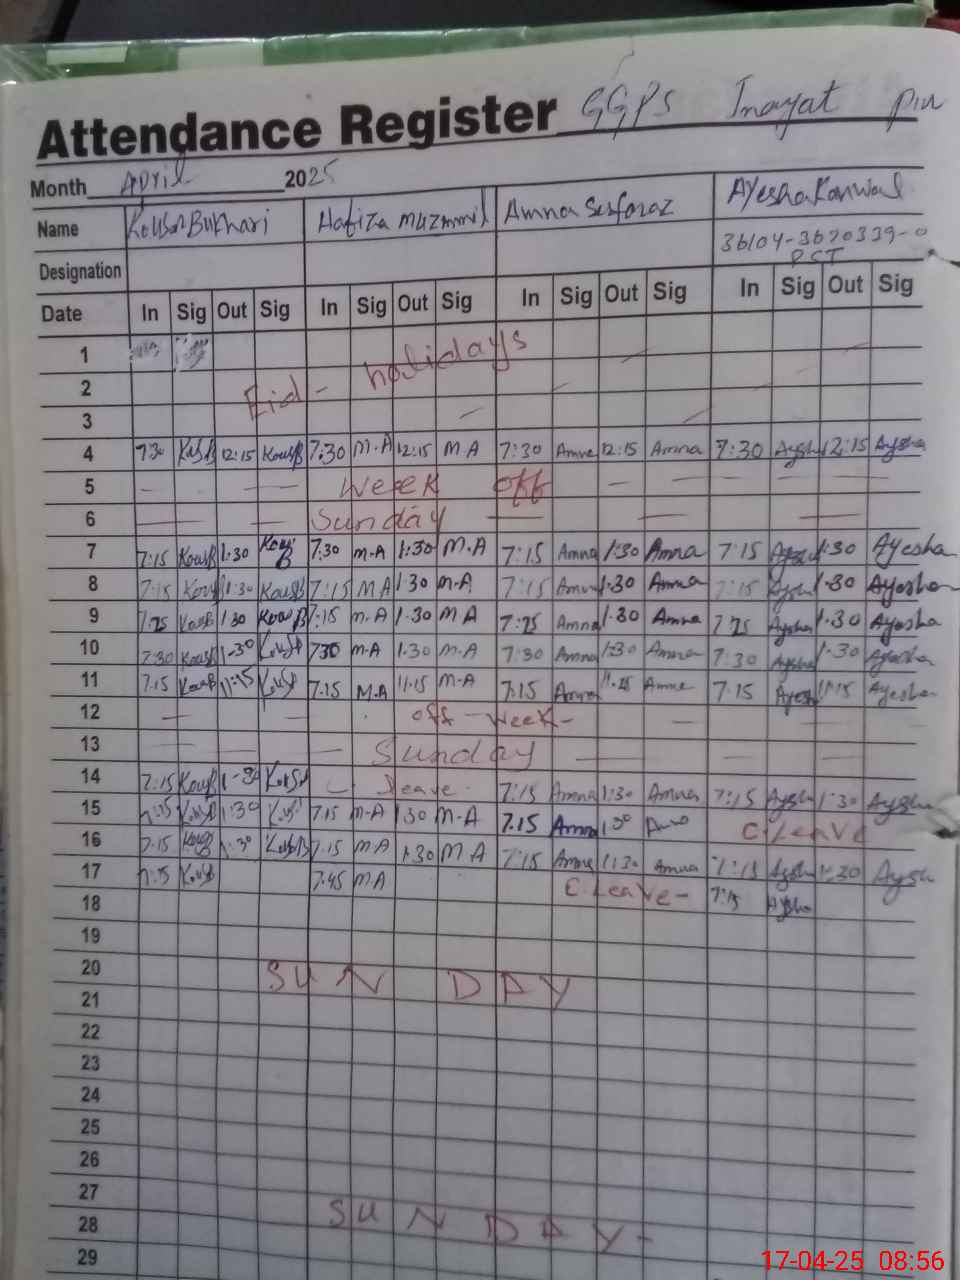 Attendance Register GGPS Inayat Pur
Month April 2025
Name Kousar Bukhari Hafiza Muzammil Amna Sarfaraz Ayesha Kanwal
36104-3670339-0
Designation PST
Date In Sig Out Sig In Sig Out Sig In Sig Out Sig In Sig Out Sig
1
2 Eid - holidays
3
4 7:30 KousB 12:15 KousB 7:30 M.A 12:15 M A 7:30 Amna 12:15 Amna 7:30 Aysha 12:15 Aysha
5 Week off
6 Sunday
7 7:15 KousB 1:30 Kous B 7:30 M.A 1:30 M.A 7:15 Amna 1:30 Amna 7:15 1:30 Ayesha
8 7:15 KousB 1:30 KousB 7:15 M A 1:30 M.A 7:15 Amna 1:30 Amna 7:15 Aysha 1:30 Ayesha
9 7:25 KousB 1:30 KousB 7:15 M.A 1:30 M A 7:25 Amna 1:30 Amna 7:25 Aysha 1:30 Ayesha
10 7:30 KousB 1-30 KousB 7:30 M.A 1:30 M.A 7:30 Amna 1:30 Amna 7:30 Aysha 1:30 Ayesha
11 7:15 KousB 11:15 KousB 7:15 M.A 11:15 M-A 7:15 Amna 11:15 Amna 7:15 Ayesh 11:15 Ayesha
12 off - Week -
13 Sunday
14 7:15 KousB 1-30 Leave 7:15 Amna 1:30 Amna 7:15 Aysha 1:30 Aysha
15 7:15 KousB 1:30 7.15 M-A 1:30 M-A 7.15 Amna 1:30 C.Leave
16 7:15 KousB 1:30 KousB 7.15 M.A 1:30 M A 7:15 Amna 1:30 Amna 7:15 Aysha 1:30 Aysh
17 7:15 KousB 7:45 M A C.Leave - 7:15 Aysha
18
19
20 SUN DAY
21
22
23
24
25
26
27 SUN DAY -
28
29
17-04-25 08:56